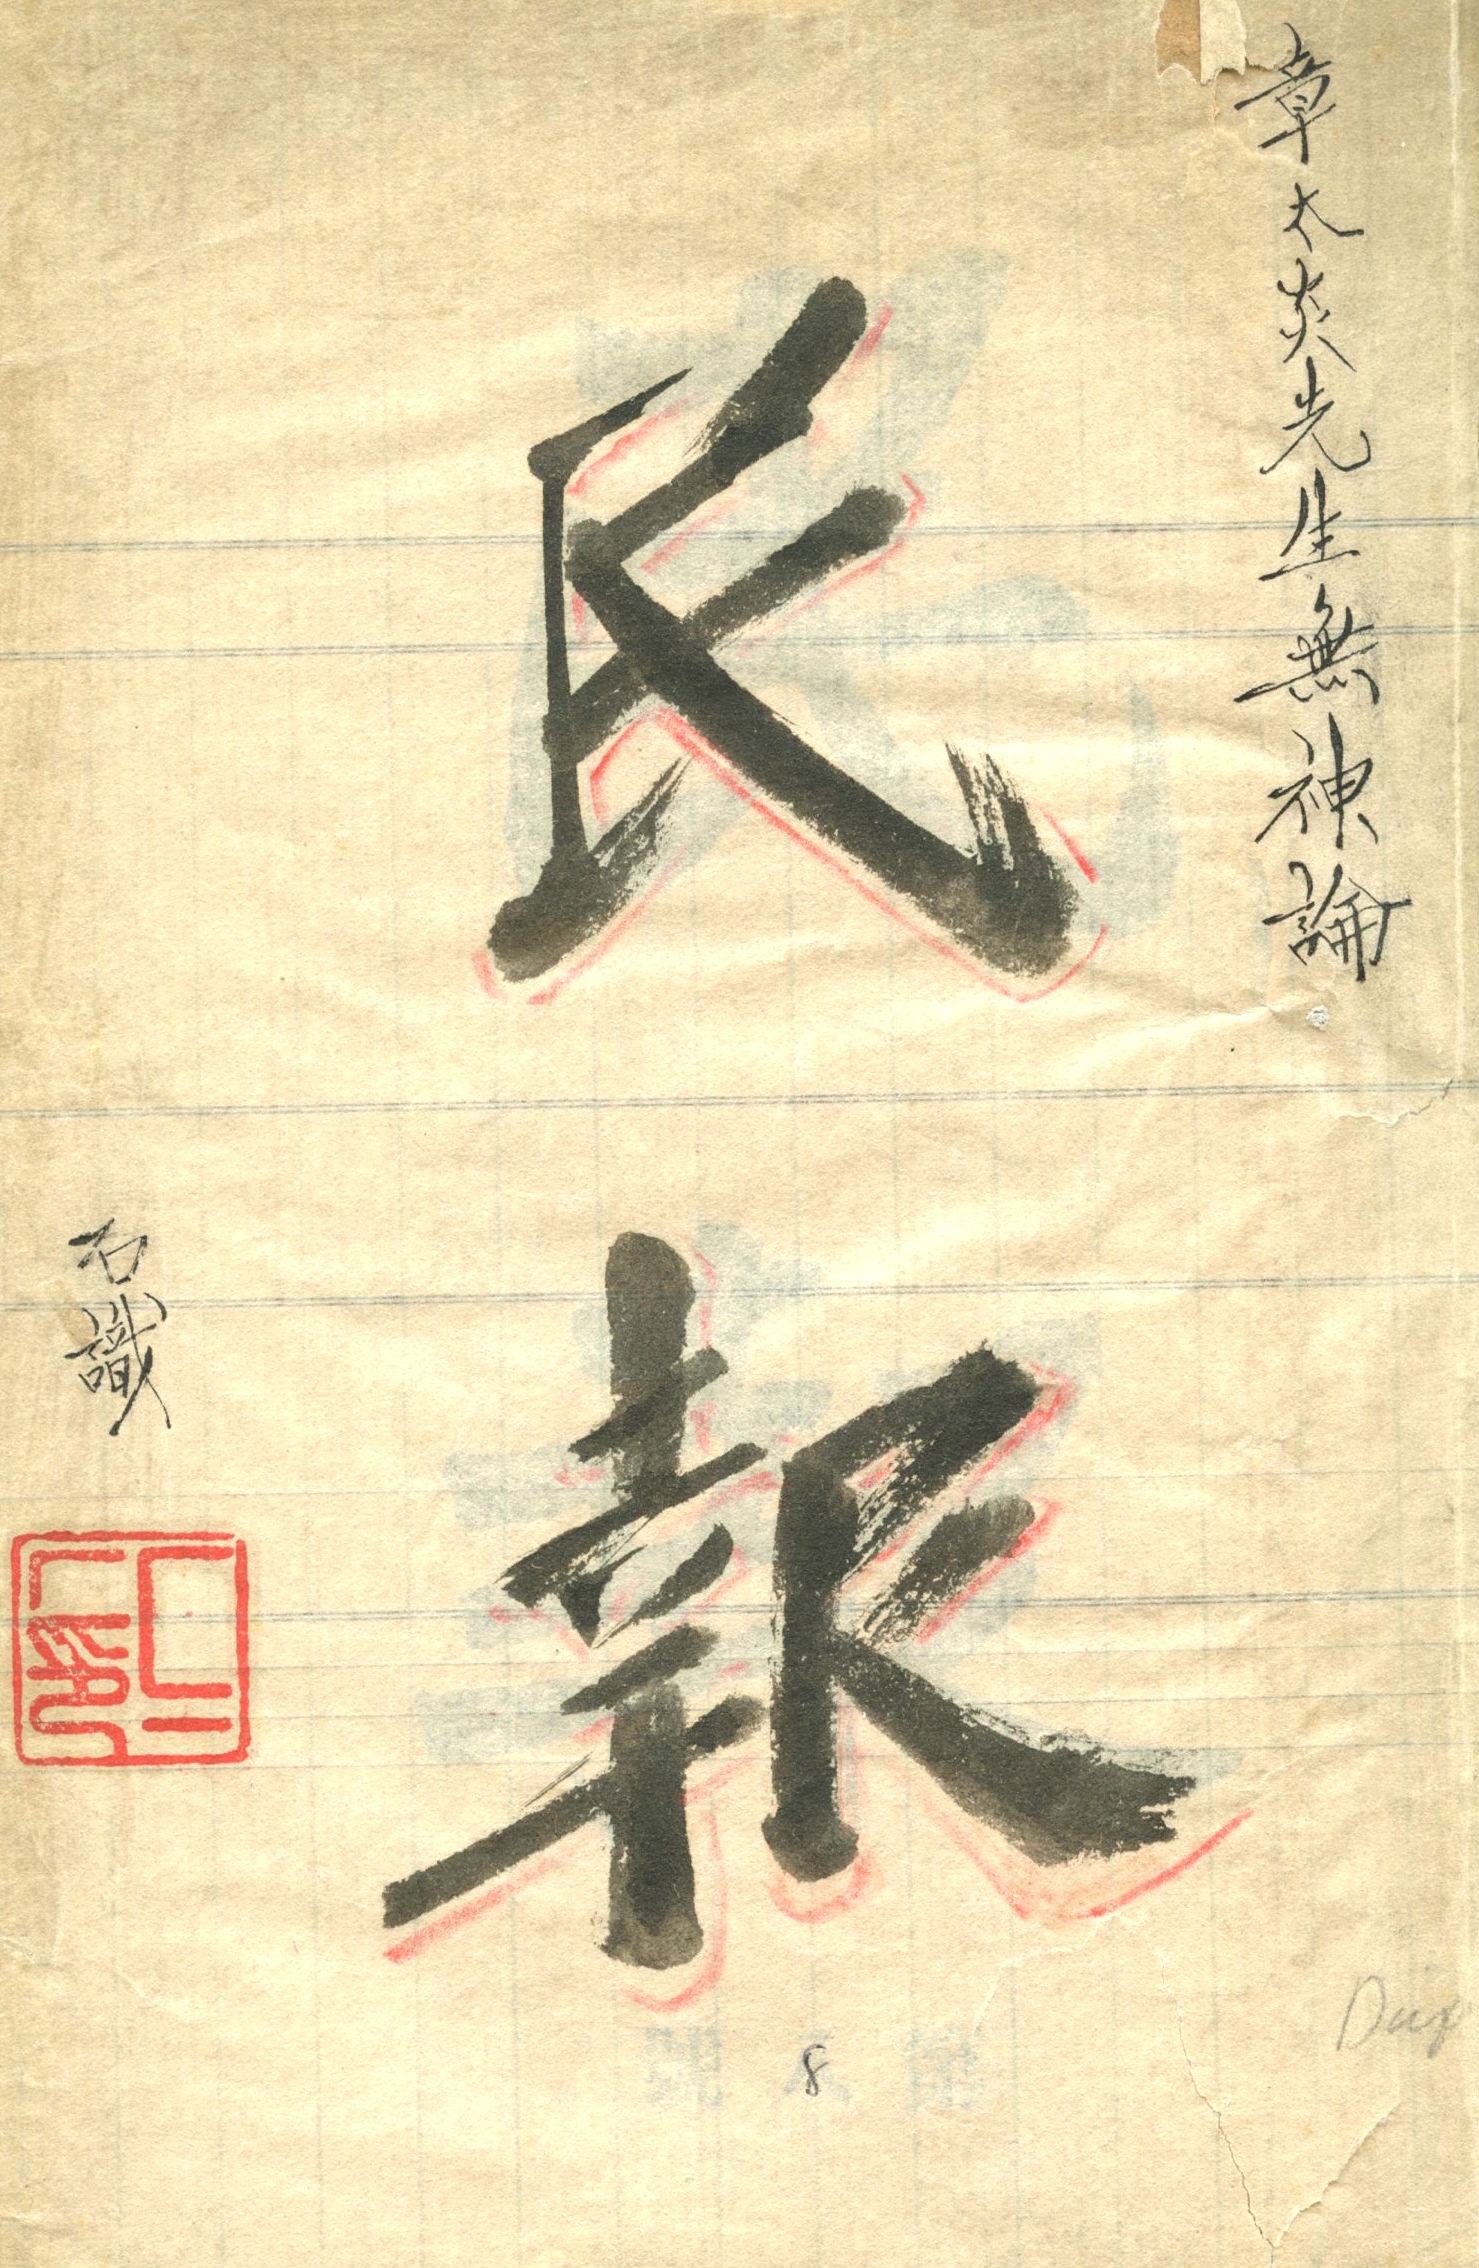 章太炎先生無神論
民報
石識
8
Dup